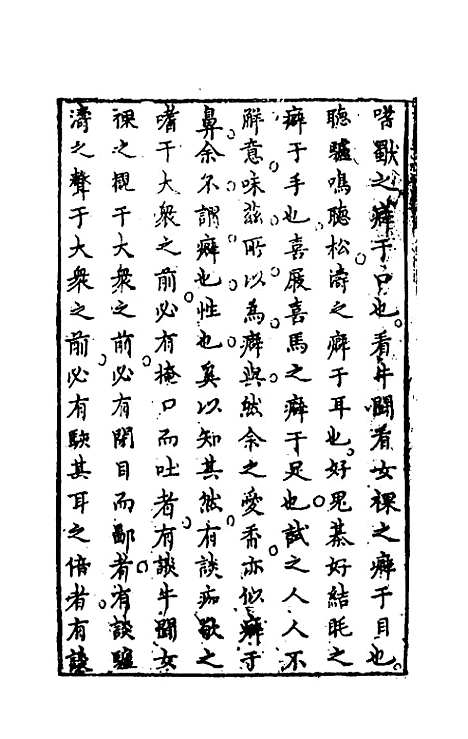 嗜歜之癖于口也。看牛鬬看女祼之癖于目也。
聽驢鳴聽松濤之癖于耳也。好兎綦好結眊之
癖于手也。喜屐喜馬之癖于足也。試之人人不
解意味茲所以為癖與然余之愛香亦似癖于
鼻。余不謂癖也性也奚以知其然。有談痂歜之
嗜于大衆之前必有掩口而吐者。有談牛鬬女
祼之觀于大衆之前。必有閉目而鄙者。有談驢
濤之聲于大衆之前必有駭其耳之倍者。有談